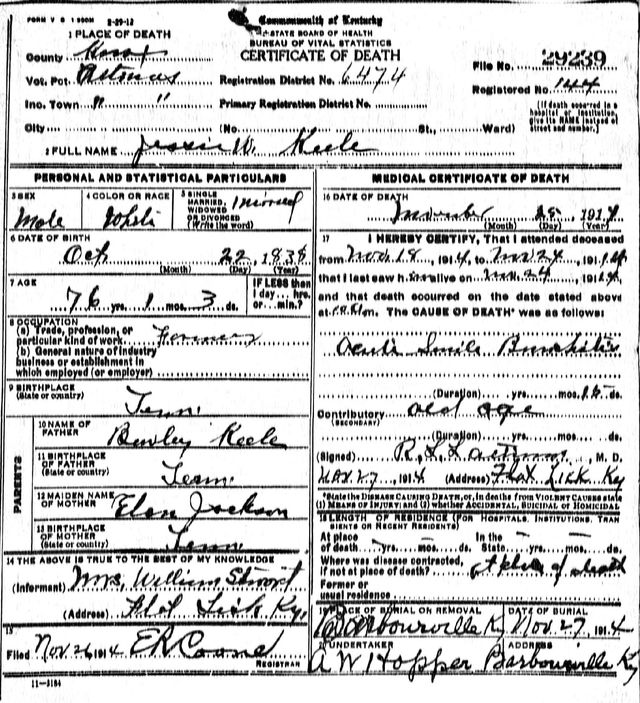 FORM V S 1 300M 2-29-12
Commonwealth of Kentucky
STATE BOARD OF HEALTH
BUREAU OF VITAL STATISTICS
CERTIFICATE OF DEATH
1 PLACE OF DEATH
County Knox
Vot. Pct.
Inc. Town " "
City (No. St., Ward)
Registration District No. 6474
Primary Registration District No.
File No. 29239
Registered No. 144
[If death occurred in a hospital or institution, give its NAME instead of street and number.]
2 FULL NAME Jessie W. Keele
PERSONAL AND STATISTICAL PARTICULARS
3 SEX Male
4 COLOR OR RACE White
5 SINGLE MARRIED, WIDOWED OR DIVORCED (Write the word) Married
6 DATE OF BIRTH
Oct 22, 1838
(Month) (Day) (Year)
7 AGE
76 yrs. 1 mos. 3 ds.
IF LESS than 1 day... hrs. or... min.?
8 OCCUPATION
(a) Trade, profession, or particular kind of work Farmer
(b) General nature of industry business or establishment in which employed (or employer)
9 BIRTHPLACE
(State or country) Tenn.
PARENTS
10 NAME OF FATHER Bewley Keele
11 BIRTHPLACE OF FATHER (State or country) Tenn.
12 MAIDEN NAME OF MOTHER Jackson
13 BIRTHPLACE OF MOTHER (State or country) Tenn.
14 THE ABOVE IS TRUE TO THE BEST OF MY KNOWLEDGE
(Informant) Mrs. William
(Address) Flat Lick Ky.
15
Filed Nov. 26, 1914 REGISTRAR
11-3184
MEDICAL CERTIFICATE OF DEATH
16 DATE OF DEATH
November 25, 1914
(Month) (Day) (Year)
17 I HEREBY CERTIFY, That I attended deceased
from Nov. 18, 1914, to Nov. 24, 1914
that I last saw him alive on Nov. 24 1914,
and that death occurred on the date stated above
at m. The CAUSE OF DEATH* was as follows:
Acute Senile Bronchitis
(Duration) yrs. mos. ds.
Contributory old age
(SECONDARY)
(Duration) yrs. mos. ds.
(Signed) M. D.
27, 1914 (Address) Flat Lick Ky
*State the DISEASE CAUSING DEATH, or, in deaths from VIOLENT CAUSES state
(1) MEANS OF INJURY; and (2) whether ACCIDENTAL, SUICIDAL or HOMICIDAL
18 LENGTH OF RESIDENCE (FOR HOSPITALS, INSTITUTIONS, TRANSIENTS OR RECENT RESIDENTS)
At place of death yrs. mos. ds. In the State yrs. mos. ds.
Where was disease contracted, if not at place of death? At place of death
Former or usual residence
19 PLACE OF BURIAL OR REMOVAL Barbourville Ky
DATE OF BURIAL Nov. 27, 1914
20 UNDERTAKER A W Hopper
ADDRESS Barbourville Ky